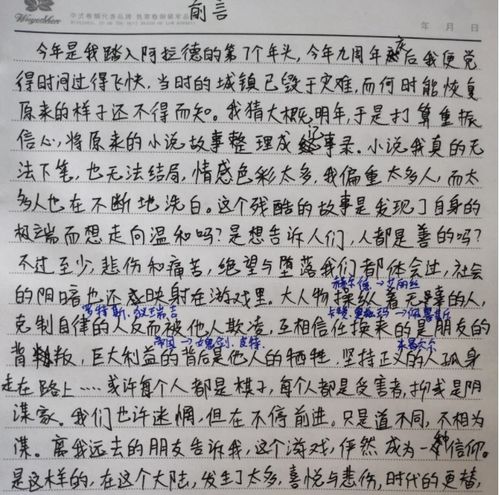 前言
中式卷烟代表品牌
年 月 日
今年是我踏入阿拉德的第7个年头,今年九周年夜后我便觉
得时间过得飞快,当时的城镇已毁于灾难,而何时能恢复
原来的样子还不得而知。我猜大概明年,于是打算重振
信心,将原来的小说故事整理成记事录。小说我真的无
法下笔,也无法结局,情感色彩太多,我偏重太多人,而太
多人也在不断地洗白。这个残酷的故事是发现了自身的
极端而想走向温和吗?是想告诉人们,人都是善的吗?
不过至少,悲伤和痛苦,绝望与堕落我们都体会过,社会
的阴暗也还映射在游戏里。大人物操纵着无辜的人,
克制自律的人反而被他人欺凌,互相信任换来的是朋友的
背叛,巨大利益的背后是他人的牺牲,坚持正义的人孤身
走在路上……或许每个人都是棋子,每个人都是受害者,抑或是阴
谋家。我们也许迷惘,但在不停前进。只是道不同,不相为
谋。离我远去的朋友告诉我,这个游戏,俨然成为一种信仰。
是这木样的,在这个大陆,发生了太多,喜悦与悲伤,时代的更替,